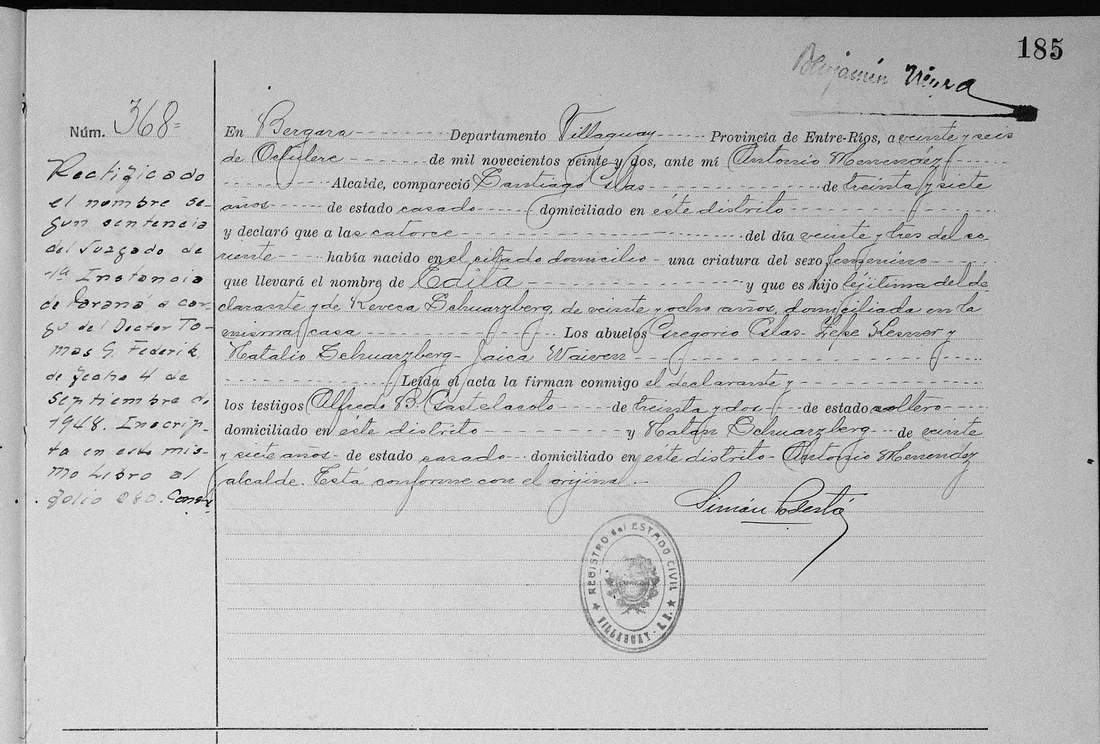 185
Benjamín
Núm. 368=
Rectificado
el nombre se-
gun sentencia
del Juzgado de
1ª Instancia
de Paraná a car-
go del Doctor To-
mas G. Federik
de fecha 4 de
septiembre
1948. Inscrip-
ta en este mis-
mo Libro al
folio 280.
En Bergara Departamento Villaguay Provincia de Entre-Ríos, a veinte y seis
de Octubre de mil novecientos veinte y dos, ante mí Antonio Menendez
Alcalde, compareció Santiago Glas de treinta y siete
años de estado casado domiciliado en este distrito
y declaró que a las catorce del día veinte y tres del co-
rriente había nacido en el citado domicilio una criatura del sexo femenino
que llevará el nombre de Edita y que es hijo lejitima del de-
clarante y de Reveca Schuarzberg, de veinte y ocho años, domiciliada en la
misma casa Los abuelos Gregorio Glas- Kesner y
Natalio Schuarzberg- Jaica Waiven
Leída el acta la firman conmigo el declarante y
los testigos Alfredo B. Castelasoto de treinta y dos de estado soltero
domiciliado en este distrito y Natan Schuarzberg de veinte
y siete años- de estado casado domiciliado en este distrito- Antonio Menendez
alcalde. Está conforme con el orijinal.-
Simón
REGISTRO del ESTADO CIVIL
VILLAGUAY - E. R.